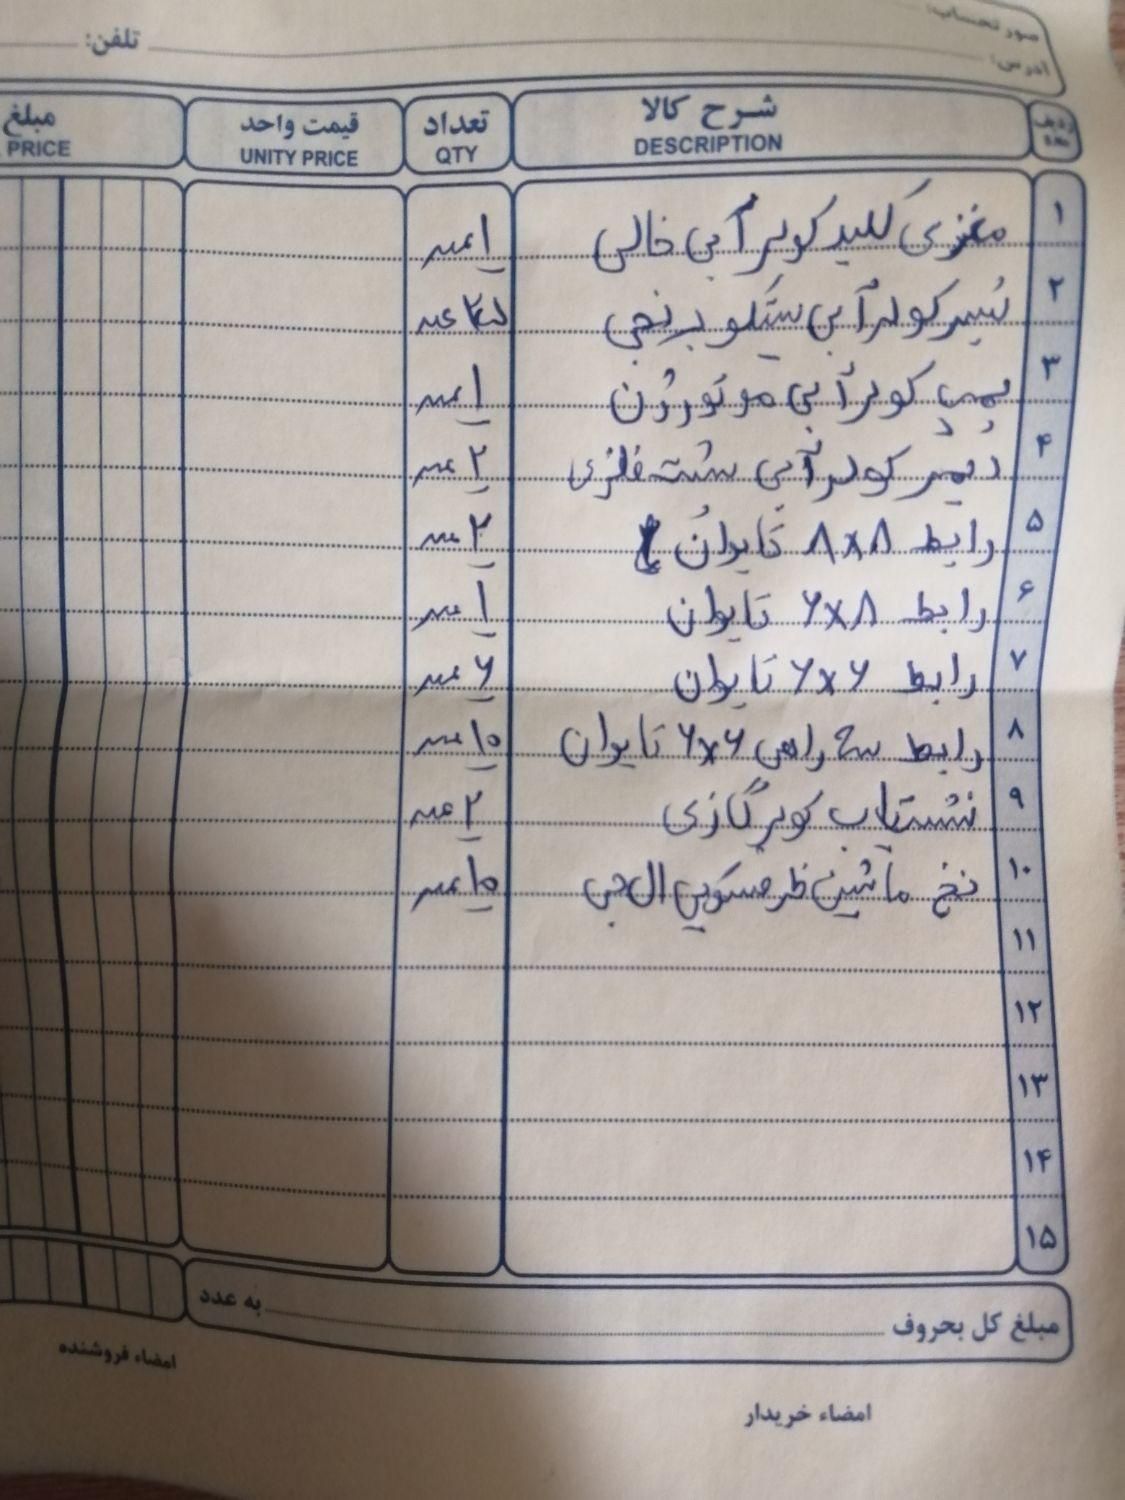 صورتحساب:
آدرس: تلفن:
ردیف شرح کالا تعداد قیمت واحد مبلغ
DESCRIPTION QTY UNITY PRICE PRICE
۱ مغزی کلید کولر آبی خالی ۱ عدد
۲ شیر کولر آبی سیکلو برنجی عدد
۳ پمپ کولر آبی موتوژن ۱ عدد
۴ پمپ کولر آبی شسته فلزی ۲ عدد
۵ رابط ۸×۸ تایوان ۲ عدد
۶ رابط ۶×۸ تایوان ۱ عدد
۷ رابط ۶×۶ تایوان ۶ عدد
۸ رابط سه راهی ۶×۶ تایوان ۱۰ عدد
۹ نشت یاب کولر گازی ۲ عدد
۱۰ نخ ماشین ظرفشویی ال جی ۱۰ عدد
۱۱
۱۲
۱۳
۱۴
۱۵
مبلغ کل بحروف به عدد
امضاء فروشنده
امضاء خریدار